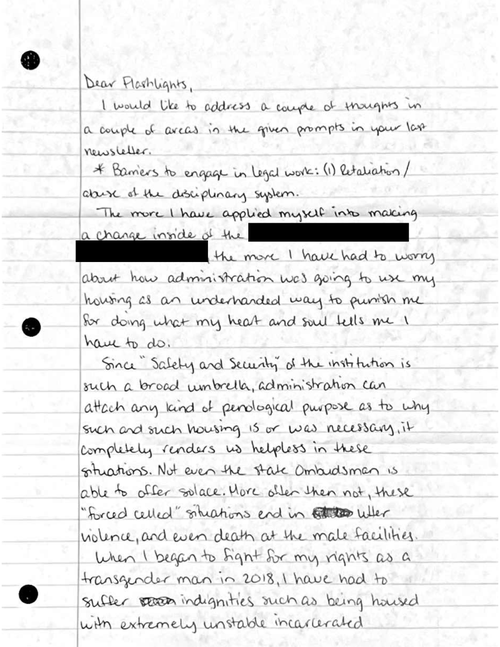 Dear Flashlights,
I would like to address a couple of thoughts in
a couple of areas in the given prompts in your last
newsletter.
* Barriers to engage in legal work: (1) Retaliation/
abuse of the disciplinary system.
The more I have applied myself into making
a change inside of the
the more I have had to worry
about how administration was going to use my
housing as an underhanded way to punish me
for doing what my heart and soul tells me I
have to do.
Since "Safety and Security" of the institution is
such a broad umbrella, administration can
attach any kind of penological purpose as to why
such and such housing is or was necessary, it
completely renders us helpless in these
situations. Not even the State Ombudsman is
able to offer solace. More often then not, these
"forced celled" situations end in utter
violence, and even death at the male facilities.
When I began to fight for my rights as a
transgender man in 2018, I have had to
suffer indignities such as being housed
with extremely unstable incarcerated